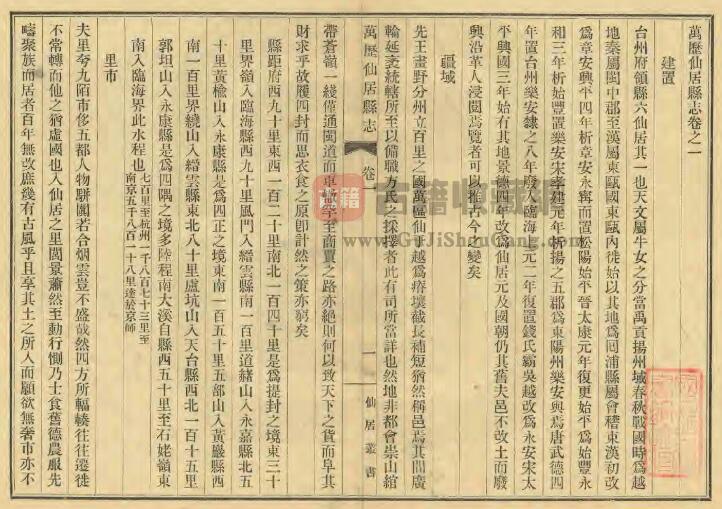 萬歷仙居縣志卷之一
建置
台州府領縣六仙居其一也天文屬牛女之分當禹貢揚州域春秋戰國時為越
地秦屬閩中郡至漢屬東甌國東甌內徙始以其地為回浦縣屬會稽東漢初改
為章安興平四年析章安永甯而置松陽始平晉太康元年復更始平為始豐永
和三年析始豐置樂安宋孝建元年析揚之五郡為東陽州樂安與焉唐武德四
年置台州樂安隸之八年廢入臨海上元二年復置錢氏霸吳越改為永安宋太
平興國三年始有其地景德四年改為仙居元及國朝仍其舊夫邑不改土而廢
興沿革人浸閱焉覽者可以推古今之變矣
疆域
先王畫野分州立百里之國萬區仙居越為瘠壤截長補短猶然稱邑焉其閒廣
輪延袤統轄所至以備職方氏之採擇者此有司所當詳也然地非都會崇山綰
萬歷仙居縣志
卷一
一
仙居叢書
帶蒼嶺一綫僅通閩道而車 罕至商賈之路亦絕則何以致天下之貨而阜其
財求乎故履四封而思衣食之原卽計然之策亦窮矣
縣距府西九十里東西一百二十里南北一百四十里是為提封之境東三十
里界嶺入臨海縣西九十里風門入縉雲縣南一百里道緒山入永嘉縣北五
十里黃榆山入永康縣是為四正之境東南一百五十里五部山入黃巖縣西
南一百里界繞山入縉雲縣東北八十里盧坑山入天台縣西北一百十五里
郭坦山入永康縣是為四隅之境多陸程南大溪自縣西五十里至石姥嶺東
南入臨海界此水程也七百里至杭州一千八百七十三里至南京五千八百一十八里達於京師
里市
夫里夸九陌市侈五都人物駢闐若合烟雲豈不盛哉然四方所輻輳往往遷徙
不常轉而他之猶慮國也人仙居之里閈景蕭然至動行惻乃士食舊德農服先
疇聚族而居者百年無改庶幾有古風乎且享其土之所入而願欲無奢市亦不
古籍收藏網
www.GuJiShuCang.com